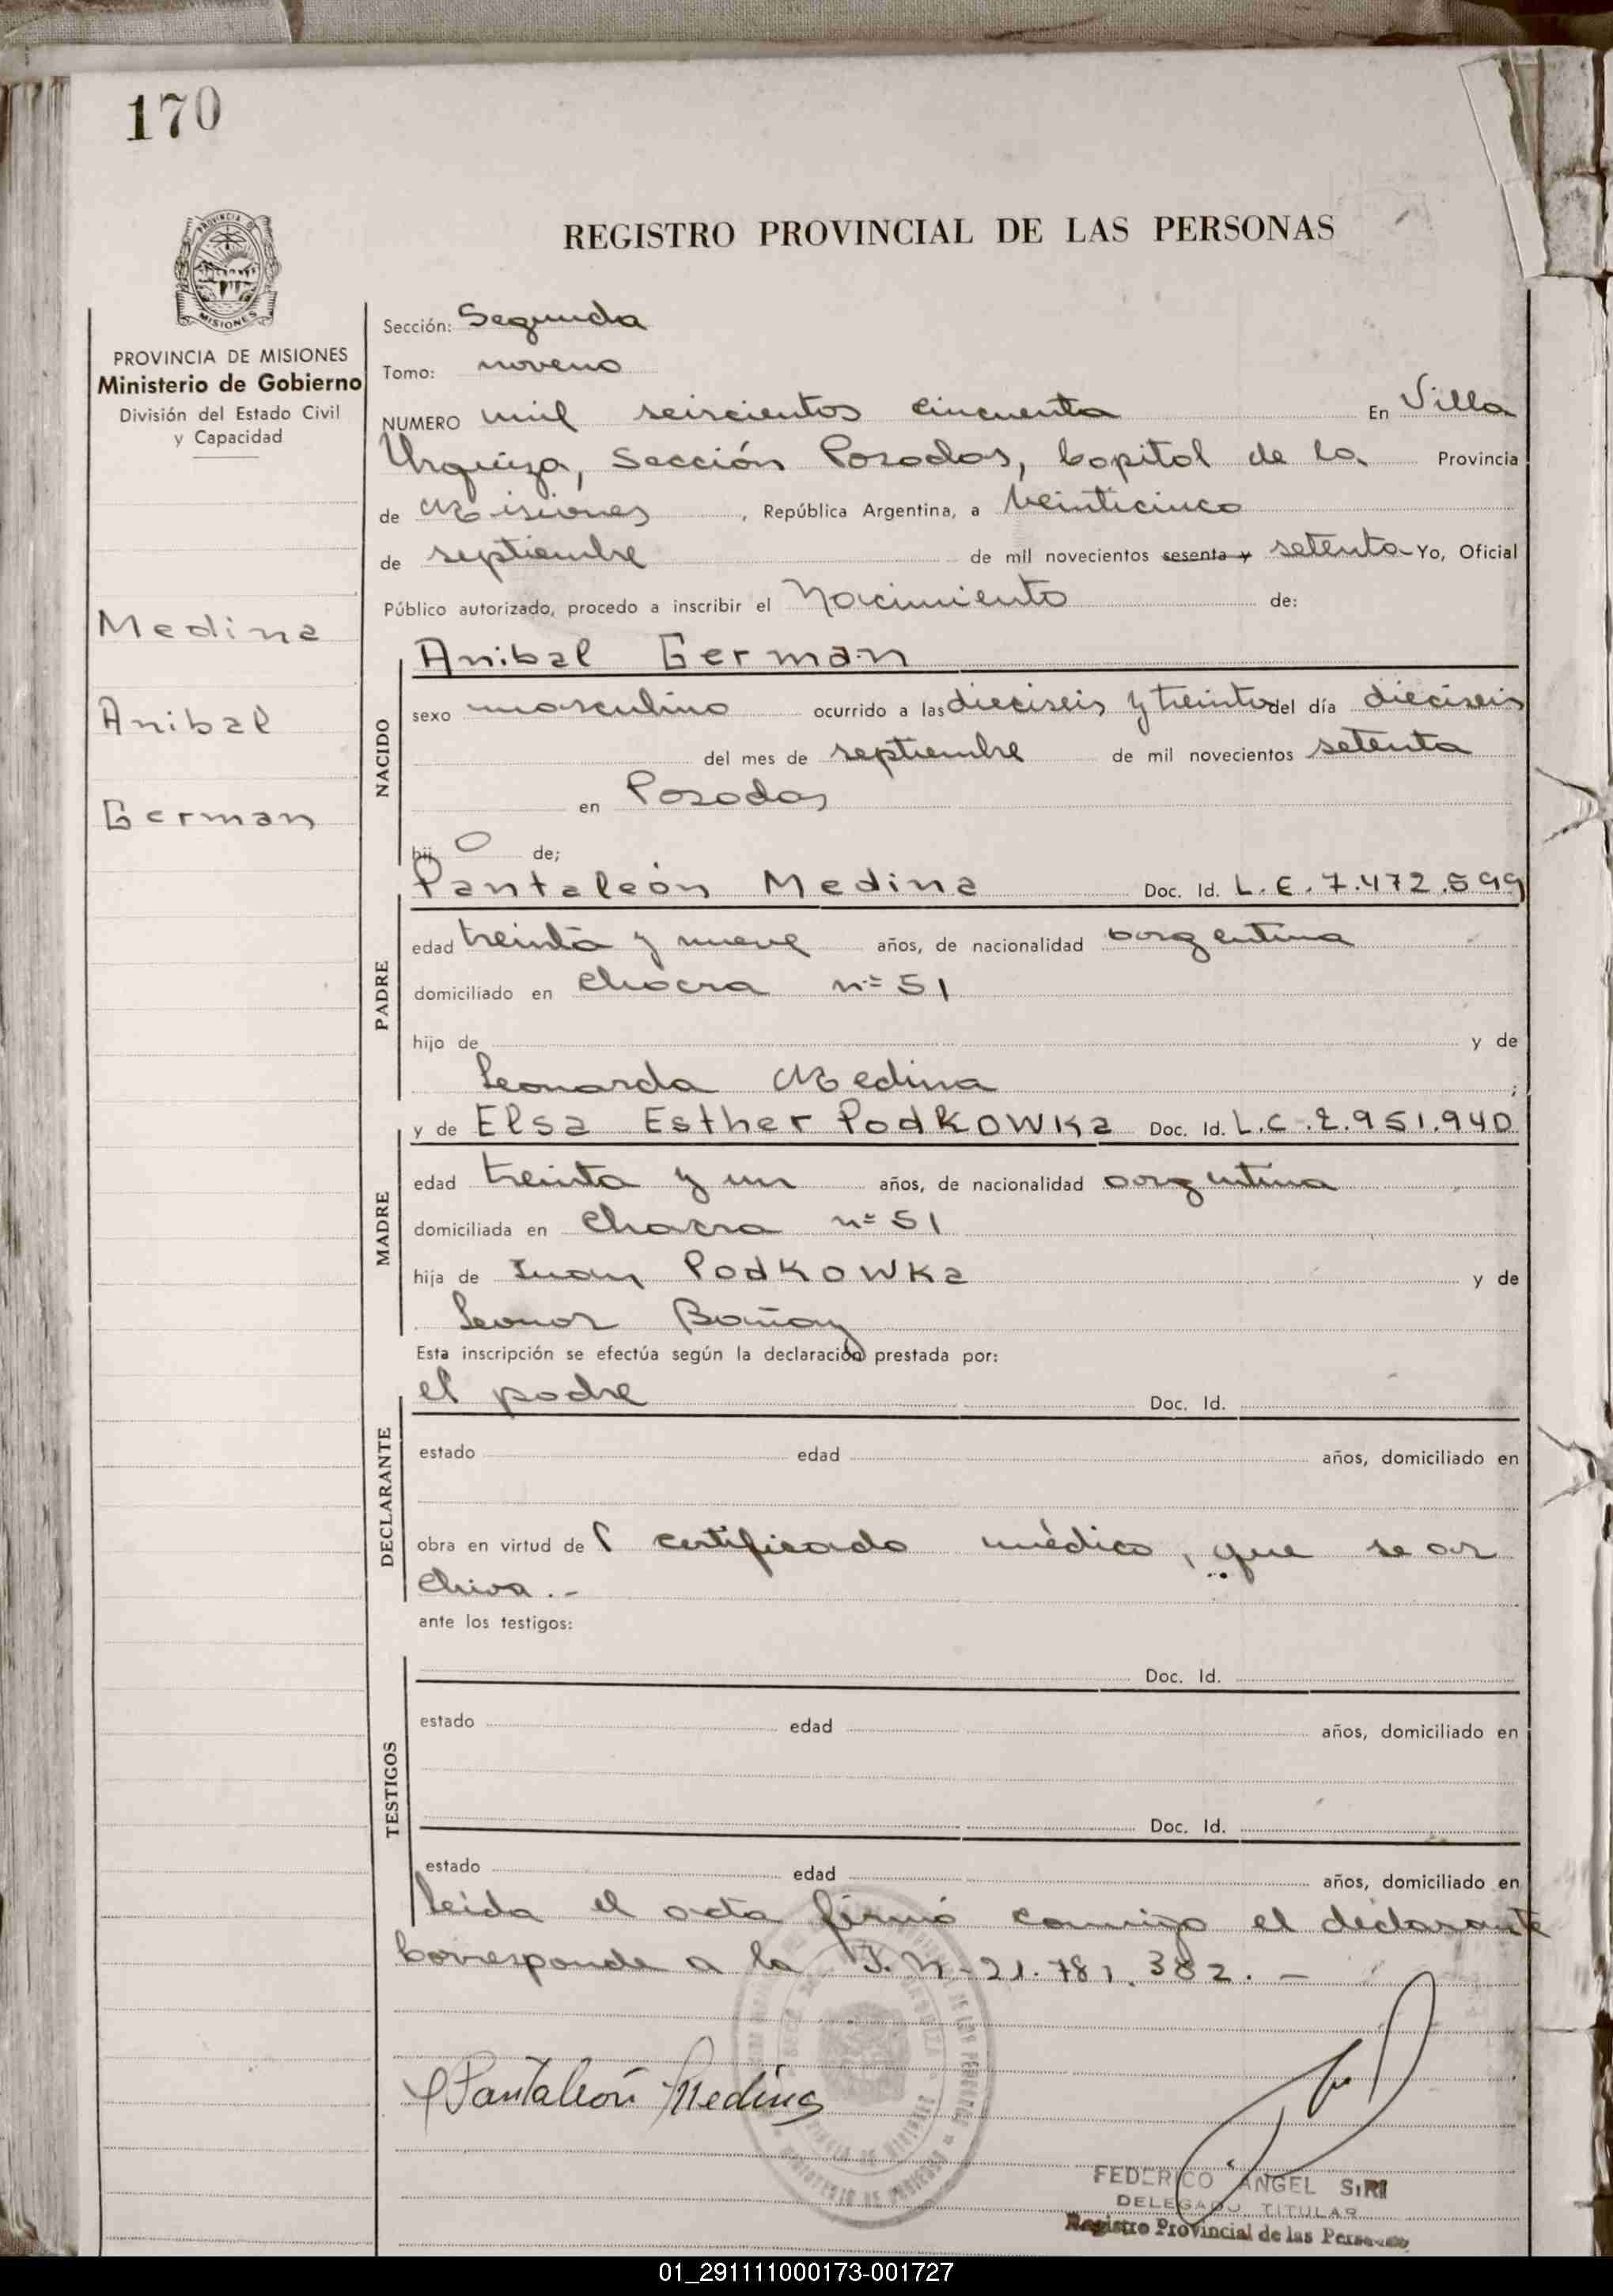 170
PROVINCIA
MISIONES
REGISTRO PROVINCIAL DE LAS PERSONAS
PROVINCIA DE MISIONES
Ministerio de Gobierno
División del Estado Civil
y Capacidad
Medina
Anibal
German
Sección: Segunda
Tomo: noveno
NUMERO mil seiscientos cincuenta En Villa
Urquiza, Sección Posadas, Capital de la Provincia
de Misiones, República Argentina, a veinticinco
de septiembre de mil novecientos sesenta y setenta Yo, Oficial
Público autorizado, procedo a inscribir el Nacimiento de:
NACIDO
Anibal German
sexo masculino ocurrido a las dieciseis y treinta del día dieciseis
del mes de septiembre de mil novecientos setenta
en Posadas
hij o de;
PADRE
Pantaleón Medina Doc. Id. L.E. 7.472.599
edad treinta y nueve años, de nacionalidad argentina
domiciliado en Chacra nº 51
hijo de y de
Leonarda Medina ;
MADRE
y de Elsa Esther Podkowka Doc. Id. L.C. 2.951.940
edad treinta y un años, de nacionalidad argentina
domiciliada en Chacra nº 51
hija de Juan Podkowka y de
Leonor
Esta inscripción se efectúa según la declaración prestada por:
DECLARANTE
el padre Doc. Id.
estado edad años, domiciliado en
obra en virtud de l certificado médico, que se ar
chiva.-
ante los testigos:
TESTIGOS
Doc. Id.
estado edad años, domiciliado en
Doc. Id.
estado edad años, domiciliado en
Leída el acta firmó conmigo el declarante
Corresponde a la F.N-21.781.382.-
Pantaleón Medina
FEDERICO ANGEL SIRI
DELEGADO TITULAR
Registro Provincial de las Personas
01_291111000173-001727